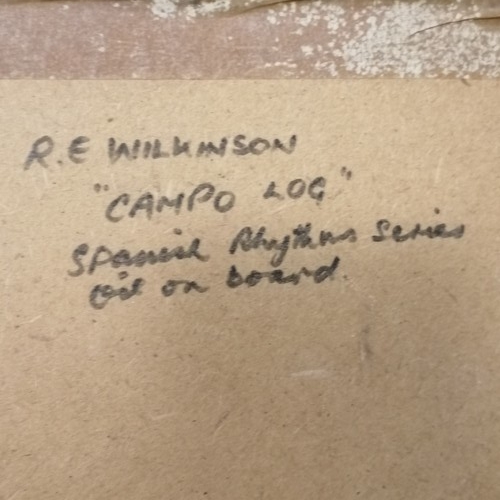 R.E WILKINSON
"CAMPO LOG"
Spanish Rhythms Series
Oil on board.